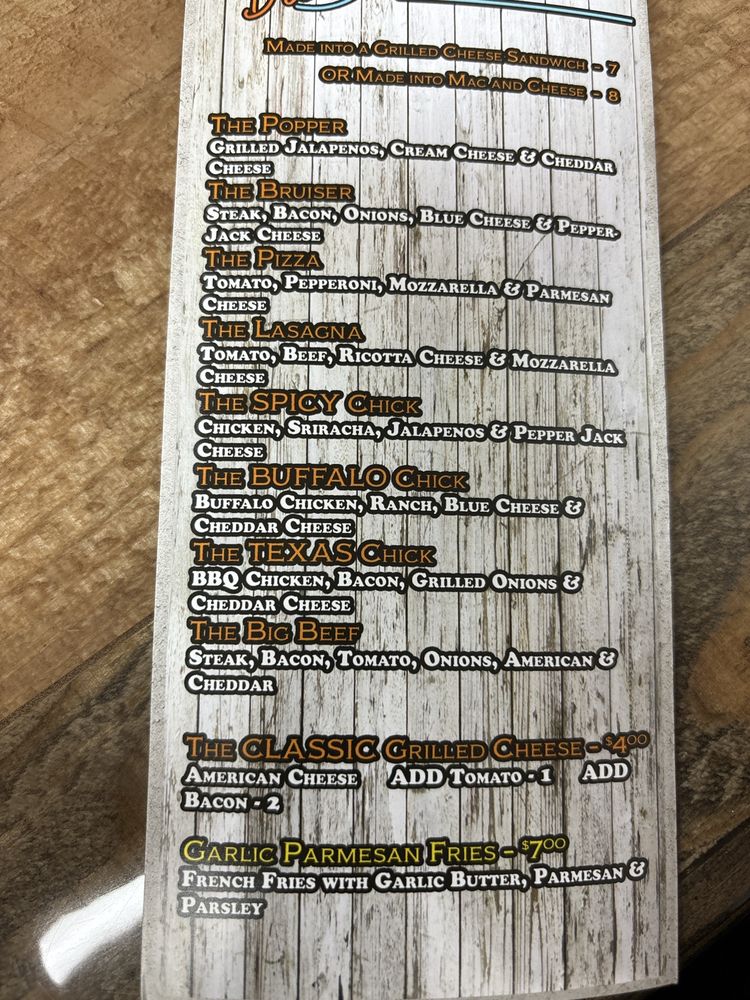 Made into a Grilled Cheese Sandwich - 7
OR Made into Mac and Cheese - 8
The Popper
Grilled Jalapenos, Cream Cheese & Cheddar
Cheese
The Bruiser
Steak, Bacon, Onions, Blue Cheese & Pepper-
Jack Cheese
The Pizza
Tomato, Pepperoni, Mozzarella & Parmesan
Cheese
The Lasagna
Tomato, Beef, Ricotta Cheese & Mozzarella
Cheese
The SPICY Chick
Chicken, Sriracha, Jalapenos & Pepper Jack
Cheese
The BUFFALO Chick
Buffalo Chicken, Ranch, Blue Cheese &
Cheddar Cheese
The TEXAS Chick
BBQ Chicken, Bacon, Grilled Onions &
Cheddar Cheese
The Big Beef
Steak, Bacon, Tomato, Onions, American &
Cheddar
The CLASSIC Grilled Cheese - $4.00
American Cheese ADD Tomato - 1 ADD
Bacon - 2
Garlic Parmesan Fries - $7.00
French Fries with Garlic Butter, Parmesan &
Parsley